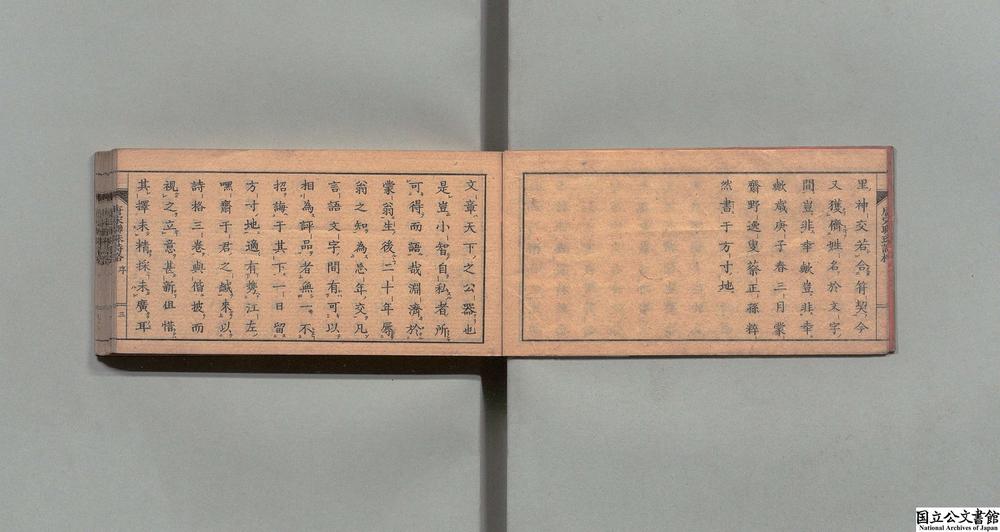 里神交若合符契今
又獲儕姓名於文字
間豈非幸歟豈非幸
歟歲庚子春三月蒙
齋野逸叟蔡正孫粹
然書于方寸地
文章天下之公器也
是豈小智自私者所
可得而語哉淵濟於
蒙翁生後二十年辱
翁之知為忘年交凡
言語文字間有可以
相為評品者無一不
招誨于其下一日留
方寸地適有携江左
嘿齋于君之緘來以
詩格三卷與偕披而
視之立意甚新但惜
其擇未精採未廣耳
序
三
国立公文書館
National Archives of Japan